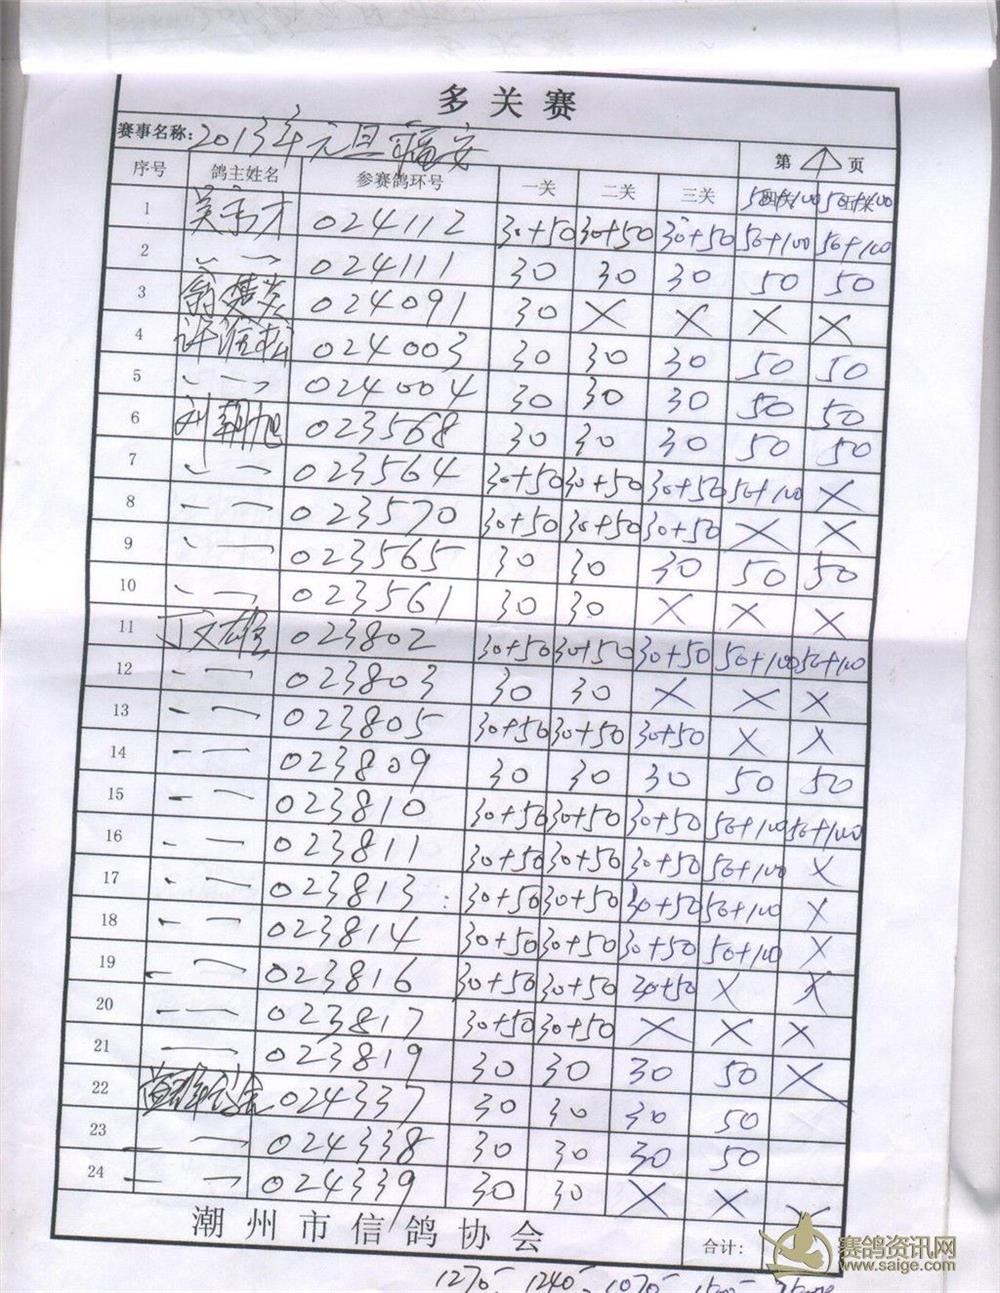 多关赛
赛事名称: 2013年元旦福安 第 1 页
序号 鸽主姓名 参赛鸽环号 一关 二关 三关 四关 五关
1 024112 30+50 30+50 30+50 50+100 50+100
2 〃 024111 30 30 30 50 50
3 024091 30 × × × ×
4 024003 30 30 30 50 50
5 〃 024004 30 30 30 50 50
6 刘朝旭 023568 30 30 30 50 50
7 〃 023564 30+50 30+50 30+50 50+100 ×
8 〃 023570 30+50 30+50 30+50 × ×
9 〃 023565 30 30 30 50 50
10 〃 023561 30 30 × × ×
11 丁文雄 023802 30+50 30+50 30+50 50+100 50+100
12 〃 023803 30 30 × × ×
13 〃 023805 30+50 30+50 30+50 × ×
14 〃 023809 30 30 30 50 50
15 〃 023810 30+50 30+50 30+50 50+100 50+100
16 〃 023811 30+50 30+50 30+50 50+100 ×
17 〃 023813 30+50 30+50 30+50 50+100 ×
18 〃 023814 30+50 30+50 30+50 50+100 ×
19 〃 023816 30+50 30+50 30+50 × ×
20 〃 023817 30+50 30+50 × × ×
21 〃 023819 30 30 30 50 ×
22 024337 30 30 30 50
23 〃 024338 30 30 30 50
24 〃 024339 30 30 × × ×
潮州市信鸽协会 合计:
1270 1240 1070
赛鸽资讯网
www.saige.com